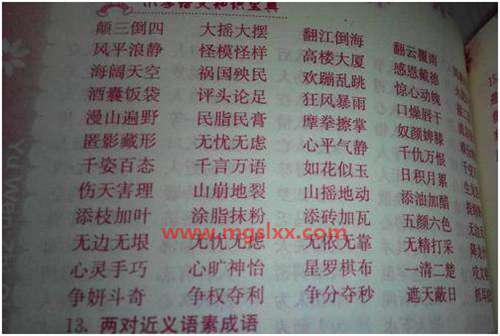 语文知识宝典
颠三倒四 大摇大摆 翻江倒海 翻云覆雨
风平浪静 怪模怪样 高楼大厦 感恩戴德
海阔天空 祸国殃民 欢蹦乱跳 惊心动魄
酒囊饭袋 评头论足 狂风暴雨 口燥唇干
漫山遍野 民脂民膏 摩拳擦掌 奴颜婢膝
匿影藏形 无忧无虑 心平气静 千仇万恨
千姿百态 千言万语 如花似玉 日积月累
伤天害理 山崩地裂 山摇地动 添油加醋
添枝加叶 涂脂抹粉 添砖加瓦 五颜六色
www.mgslxx.com
无边无垠 无忧无虑 无依无靠 无精打采
心灵手巧 心旷神怡 星罗棋布 一清二楚
争妍斗奇 争权夺利 争分夺秒 遮天蔽日
13. 两对近义语素成语